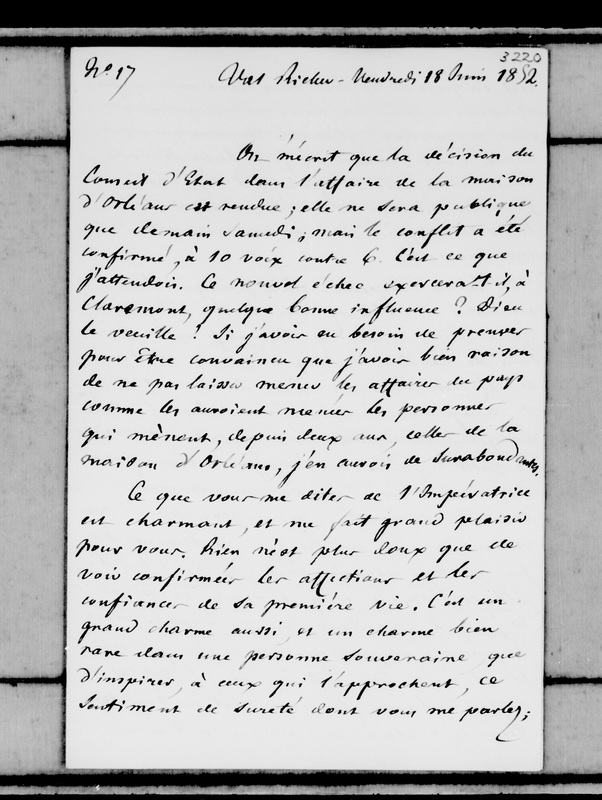 3220
No 17 Val Richer - Vendredi 18 Juin 1852.
On m'écrit que la décision du
Conseil d'Etat dans l'affaire de la maison
d'Orléans est rendue ; elle ne sera publique
que demain samedi ; mais le conflit a été
confirmé, à 10 voix contre 6. C'est ce que
j'attendois. Ce nouvel échec exercera-t-il, à
Claremont, quelque bonne influence ? Dieu
le veuille ! Si j'avois eu besoin de preuves
pour être convaincu que j'avois bien raison
de ne pas laisser mener les affaires du pays
comme les auroient menées les personnes
qui mènent, depuis deux ans, celles de la
maison d'Orléans, j'en aurois de surabondantes.
Ce que vous me dites de l'Impératrice
est charmant, et me fait grand plaisir
pour vous. Rien n'est plus doux que de
voir confirmées les affections et les
confiances de sa première vie. C'est un
grand charme aussi, et un charme bien
rare dans une personne souveraine, que
d'inspirer, à ceux qui l'approchent, ce
sentiment de sureté dont vous me parlez ;